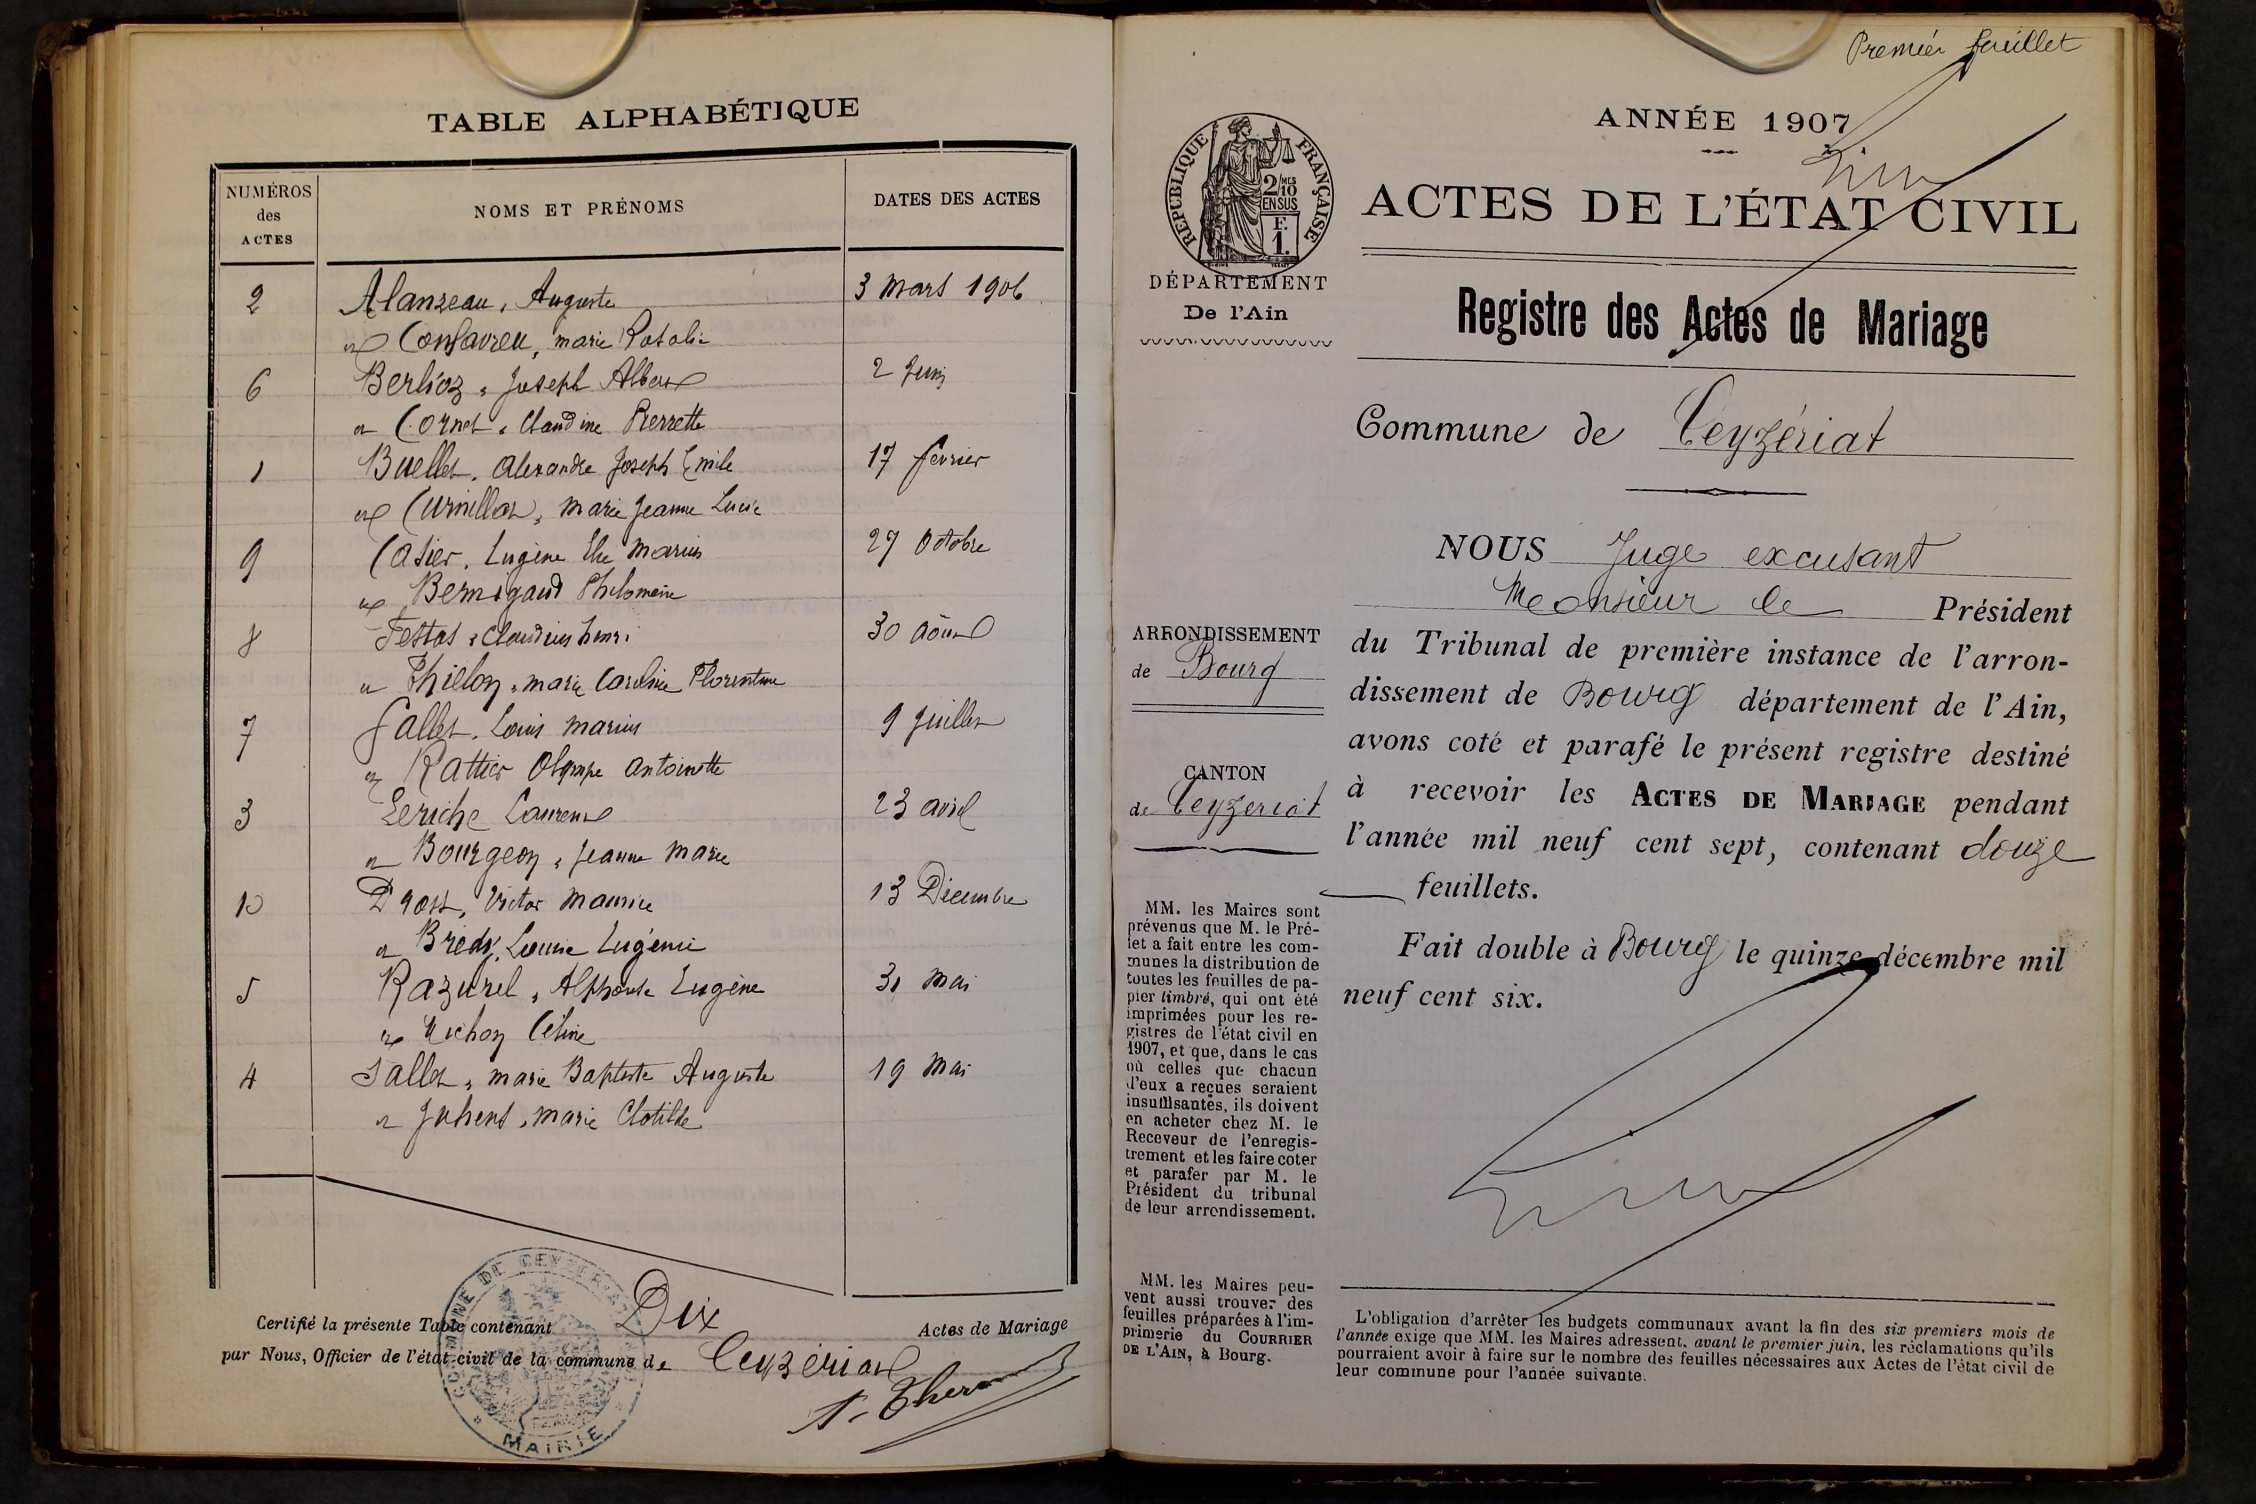 TABLE ALPHABÉTIQUE
NUMÉROS des ACTES
NOMS ET PRÉNOMS
DATES DES ACTES
2 Alanzeau, Auguste 3 Mars 1906
et Confavreu, marie Rosalie
6 Berlioz, Joseph Albert 2 Juin
et Cornet, Claudine Pierrette
1 Buellet, Alexandre Joseph Emile 17 février
et Curnillon, Marie Jeanne Lucie
9 Casier, Eugène Marius 27 Octobre
et Philomène
8 Festas, Claudius henri 30 Août
et Thielon, marie Caroline Florentine
7 Gallet, Louis marius 9 Juillet
et Rattier Olympe antoinette
3 Leriche Laurent 23 avril
et Bourgeon, Jeanne Marie
10 Victor Maurice 13 Décembre
et Bredy, Louise Eugénie
5 Razurel, Alphonse Eugène 31 Mai
et Michon Céline
4 Sallet, marie Baptiste Auguste 19 Mai
et marie Clotilde
Certifié la présente Table contenant Dix Actes de Mariage
par Nous, Officier de l'état civil de la commune de Ceyzériat
COMMUNE DE CEYZERIAT
MAIRIE
Premier feuillet
ANNÉE 1907
RÉPUBLIQUE FRANÇAISE
2/10MES
EN SUS
F.
1.
ACTES DE L'ÉTAT CIVIL
DÉPARTEMENT
De l'Ain
Registre des Actes de Mariage
Commune de Ceyzériat
NOUS Juge excusant
Monsieur le Président
du Tribunal de première instance de l'arron-
dissement de Bourg département de l'Ain,
avons coté et parafé le présent registre destiné
à recevoir les ACTES DE MARIAGE pendant
l'année mil neuf cent sept, contenant douze
feuillets.
Fait double à Bourg le quinze décembre mil
neuf cent six.
ARRONDISSEMENT
de Bourg
CANTON
de Ceyzeriat
MM. les Maires sont
prévenus que M. le Pré-
fet a fait entre les com-
munes la distribution de
toutes les feuilles de pa-
pier timbré, qui ont été
imprimées pour les re-
gistres de l'état civil en
1907, et que, dans le cas
où celles que chacun
d'eux a reçues seraient
insuffisantes, ils doivent
en acheter chez M. le
Receveur de l'enregis-
trement et les faire coter
et parafer par M. le
Président du tribunal
de leur arrondissement.
MM. les Maires peu-
vent aussi trouver des
feuilles préparées à l'im-
primerie du COURRIER
DE L'AIN, à Bourg.
L'obligation d'arrêter les budgets communaux avant la fin des six premiers mois de
l'année exige que MM. les Maires adressent, avant le premier juin, les réclamations qu'ils
pourraient avoir à faire sur le nombre des feuilles nécessaires aux Actes de l'état civil de
leur commune pour l'année suivante.